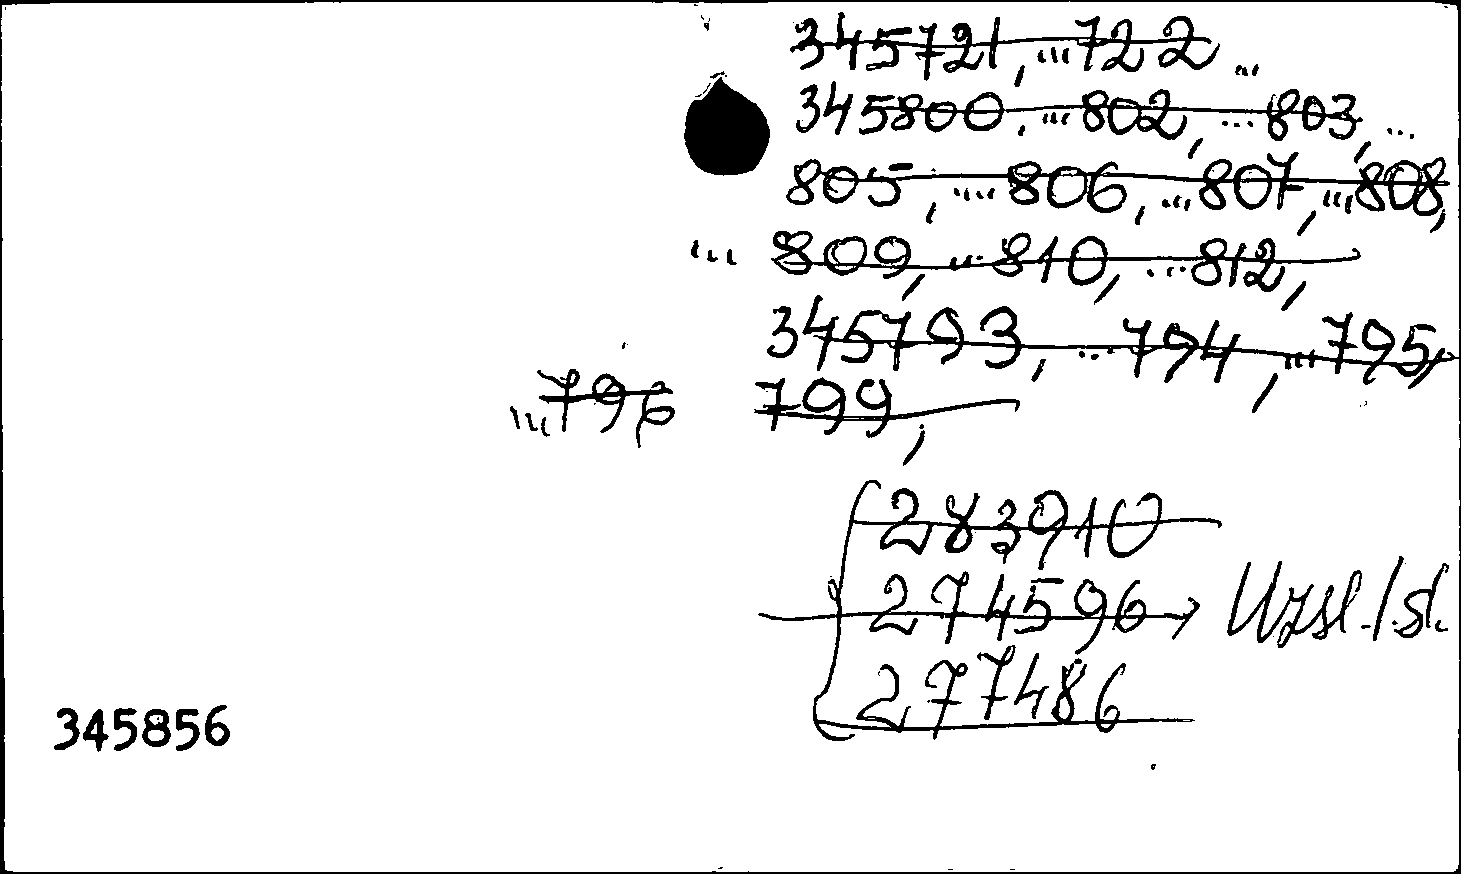 345721, ...722 ...
345800, ...802, ...803, ...
805, ...806, ...807, ...808,
... 809, ...810, ...812,
345793, ...794, ...795,
...796 799,
283910
274596 → Uzsl./sl.
277486
345856